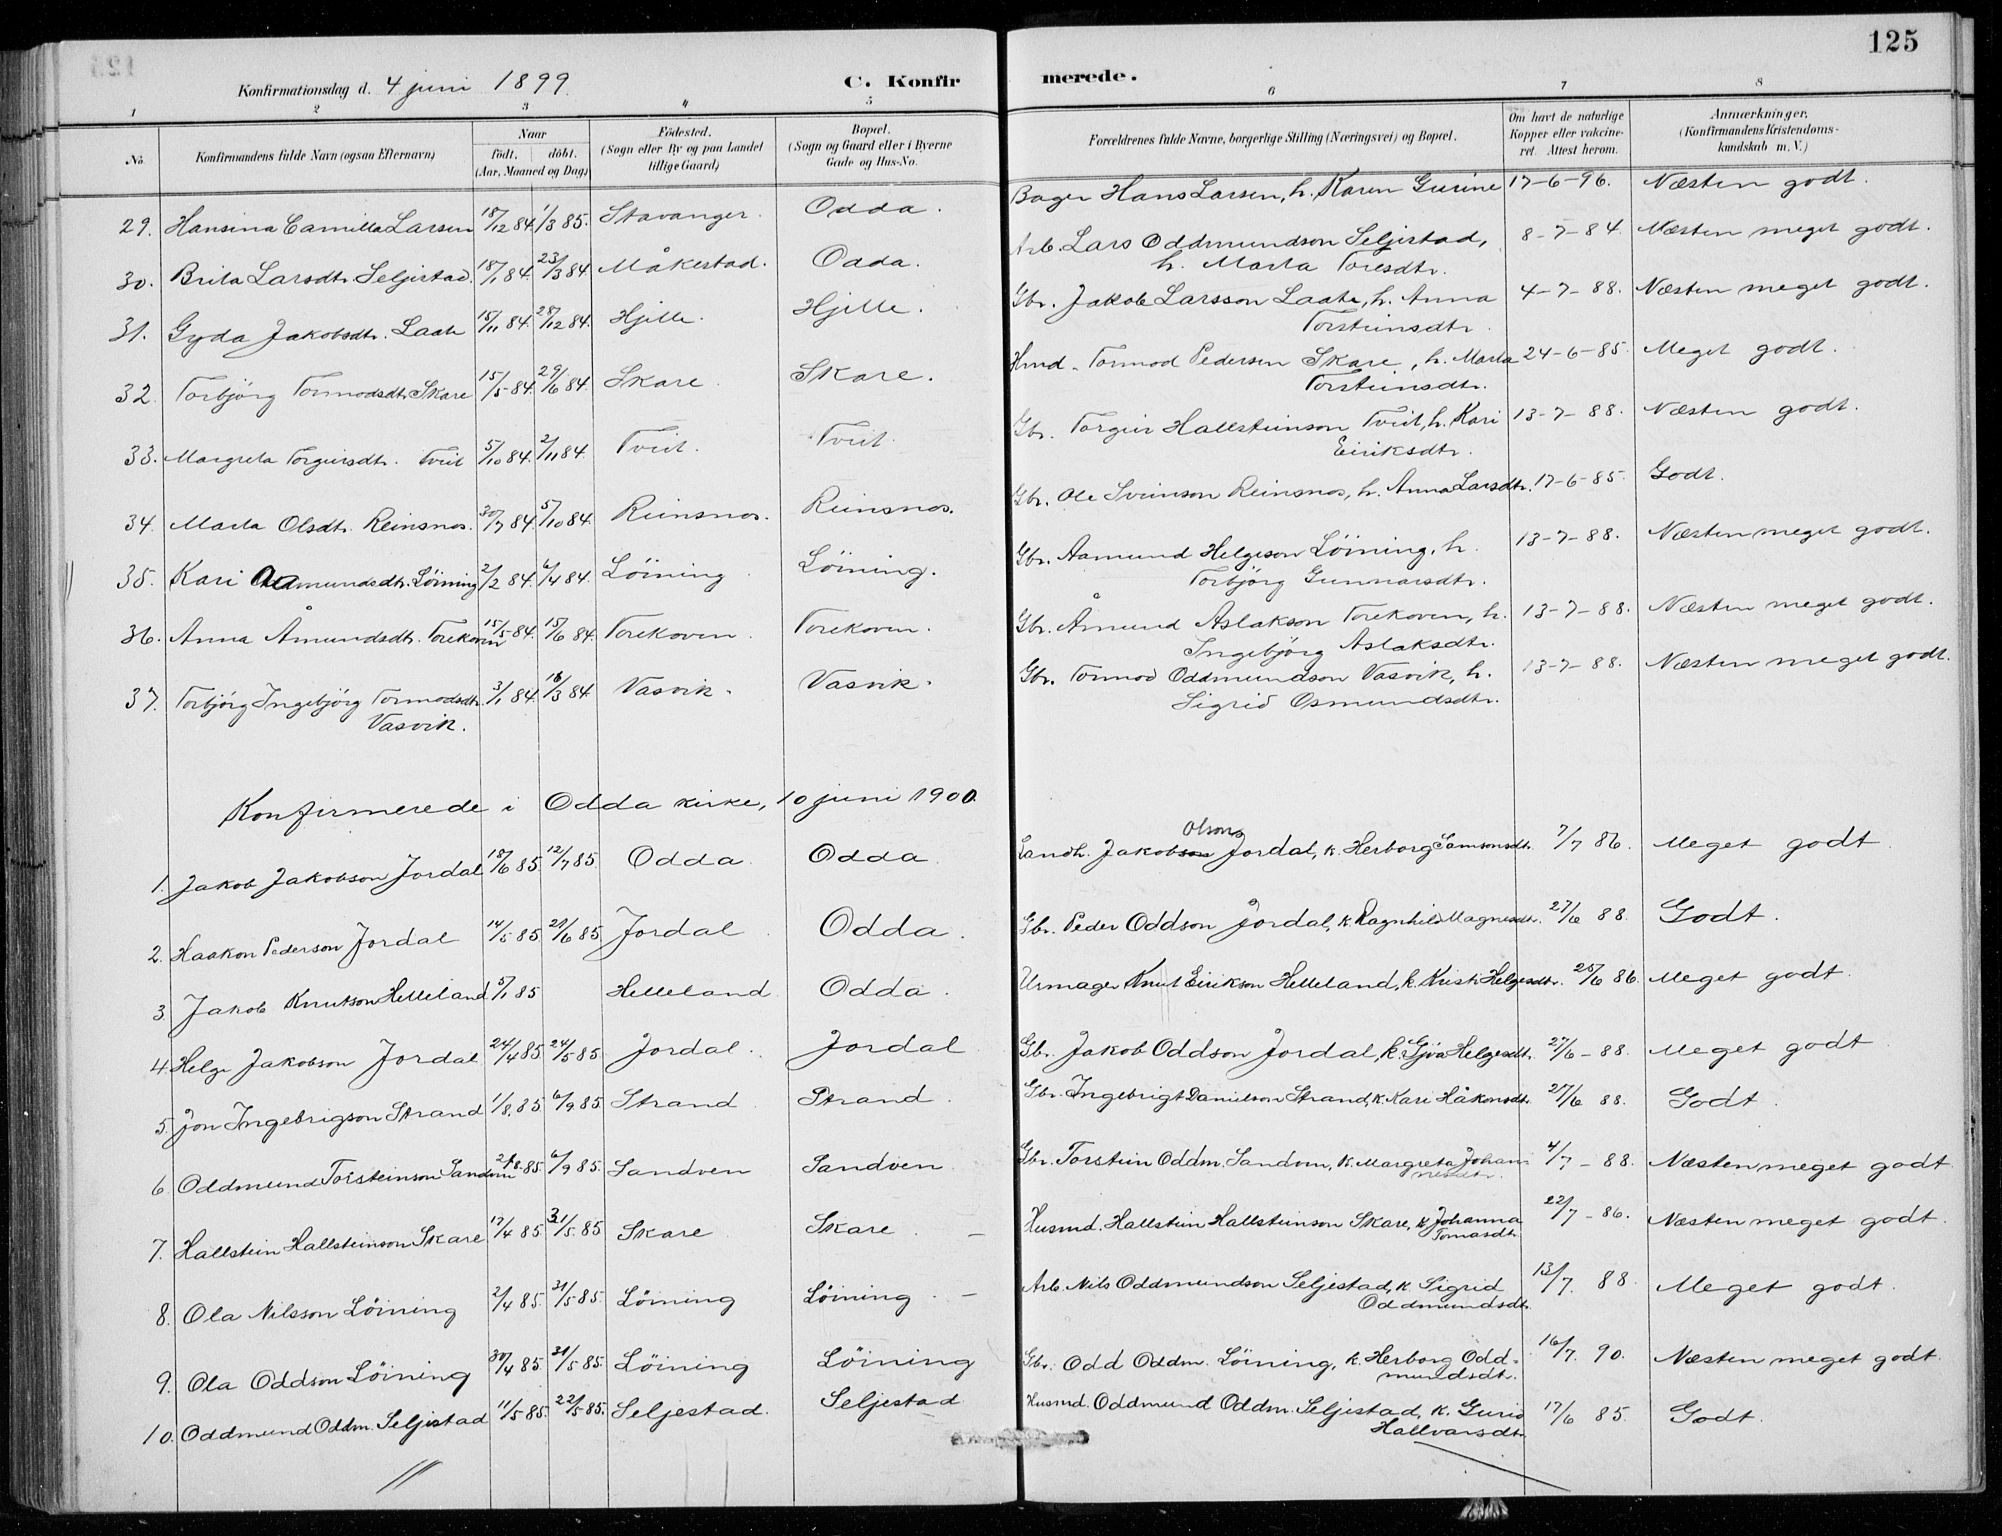 125
Konfirmationsdag d. 4 juni 1899.
C. Konfirmerede.
1 2 3 4 5 6 7 8
No. Konfirmandens fulde Navn (ogsaa Efternavn) Naar født. døbt. (Aar, Maaned og Dag) Fødested. (Sogn eller By og paa Landet tillige Gaard) Bopæl. (Sogn og Gaard eller i Byerne Gade og Hus-No. Forældrenes fulde Navne, borgerlige Stilling (Næringsvei) og Bopæl. Om havt de naturlige Kopper eller vakcineret. Attest herom. Anmærkninger, (Konfirmandens Kristendomskundskab m. V.)
29. Hansina Camilla Larsen 18/12 84. 1/3 85. Stavanger. Odda. Bager Hans Larsen, h. Karen Gurine 17-6-96. Næsten godt.
30. Brita Larsdtr. Seljestad. 18/1 84. 23/3 84. Måkestad. Odda. Arb. Lars Oddmundson Seljestad, h. Marta Toresdtr. 8-7-84. Næsten meget godt.
31. Gyda Jakobsdtr. Laate 15/11 84. 28/12 84. Hjelle. Hjelle. Gbr. Jakob Larsson Laate, h. Anna Torsteinsdtr. 4-7-88. Næsten meget godt.
32. Torbjörg Tormodsdtr. Skare 15/5 84. 29/6 84. Skare. Skare. Hmd. Tormod Pedersen Skare, h. Marta Torsteinsdtr. 24-6-85. Meget godt.
33. Margreta Torgeirsdtr. Tveit 5/10 84. 2/11 84. Tveit. Tveit. Gbr. Torgeir Hallsteinson Tveit, h. Kari Eiriksdtr. 13-7-88. Næsten godt.
34. Marta Olsdtr. Reinsnos. 30/7 84. 5/10 84. Reinsnos. Reinsnos. Gbr. Ole Sveinson Reinsnos, h. Anna Larsdtr. 17-6-85. Godt.
35. Kari Aamundsdtr. Löining 2/2 84. 6/4 84. Löining Löining. Gbr. Aamund Helgeson Löining, h. Torbjörg Gunnarsdtr. 13-7-88. Næsten meget godt.
36. Anna Åmundsdtr. Torekoven 15/5 84. 15/6 84. Torekoven. Torekoven. Gbr. Åmund Aslakson Torekoven, h. Ingebjörg Aslaksdtr. 13-7-88. Næsten meget godt.
37. Torbjörg Ingebjörg Tormodsdtr. Vasvik. 3/1 84. 16/3 84 Vasvik. Vasvik. Gbr. Tormod Oddmundson Vasvik, h. Sigrid Osmundsdtr. 13-7-88. Næsten meget godt.
Konfirmerede i Odda kirke, 10 juni 1900.
1. Jakob Jakobson Jordal 18/6 85. 12/7 85. Odda. Odda Landh. Jakob Olsons Jordal, k. Herborg Samsonsdt. 7/7 86. Meget godt
2. Haakon Pederson Jordal 14/5 85 21/6 85. Jordal Odda. Gbr. Peder Oddson Jordal, k. Ragnhild Magnesdt. 27/6 88. Godt.
3. Jakob Knutson Helleland 5/1 85 Helleland Odda. Urmager Knut Eirikson Helleland, k. Kristi Helgesdtr. 25/6 86. Meget godt.
4. Helge Jakobson Jordal 24/4 85 24/5 85. Jordal. Jordal Gbr. Jakob Oddson Jordal, k. Gjöa Helgesdt. 27/6-88. Meget godt
5. Jon Ingebrigson Strand 1/8 85 6/9 85. Strand Strand. Gbr. Ingebrigt Danielson Strand, k. Kari Håkonsdt. 27/6 88. Godt.
6. Oddmund Torsteinson Sandven 2/8 85. 6/9 85. Sandven Sandven Gbr. Torstein Oddm. Sandven, k. Margreta Johannesdtr. 4/7-88. Næsten meget godt.
7. Hallstein Hallsteinson Skare 17/4 85 31/5 85 Skare Skare. Husmd. Hallstein Hallsteinson Skare, k. Johanna Tomasdt. 22/7-86. Næsten meget godt.
8. Ola Nilsson Löining 2/4 85. 31/5 85. Löining Löining. Arb. Nils Oddmundson Seljestad, k. Sigrid Oddmundsdt. 13/7. 88. Meget godt.
9. Ola Oddson Löining 30/4 85. 31/5 85. Löining Löining Gbr. Odd Oddm. Löining, k. Herborg Oddmundsdt. 16/7. 90. Næsten meget godt.
10. Oddmund Oddm. Seljestad 11/5 85. 22/5 85. Seljestad. Seljestad Husmd. Oddmund Oddm. Seljestad, k. Gurid Hallvarsdt. 17/6 85. Godt.